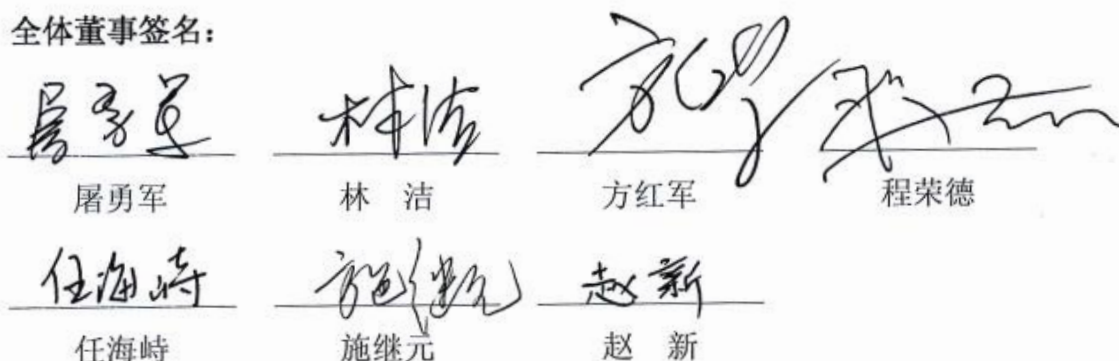 全体董事签名：
屠勇军 林洁 方红军 程荣德
屠勇军 林 洁 方红军 程荣德
任海峙 施继元 赵新
任海峙 施继元 赵 新